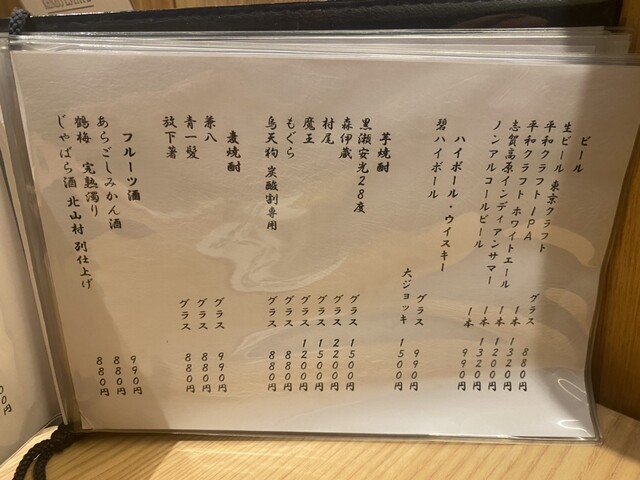 ビール
生ビール 東京クラフト グラス 880円
平和クラフト IPA 1本 1320円
平和クラフト ホワイトエール 1本 1200円
志賀高原インディアンサマー 1本 1320円
ノンアルコールビール 1本 990円
ハイボール・ウイスキー
碧ハイボール グラス 990円
大ジョッキ 1500円
芋焼酎
黒瀬安光28度 グラス 1500円
森伊蔵 グラス 2200円
村尾 グラス 1500円
魔王 グラス 1200円
もぐら グラス 880円
烏天狗 炭酸割専用 グラス 880円
麦焼酎
兼八 グラス 990円
青一髪 グラス 880円
放下著 グラス 880円
フルーツ酒
あらごしみかん酒 990円
鶴梅 完熟濁り 880円
じゃばら酒 北山村 別仕上げ 880円
00円